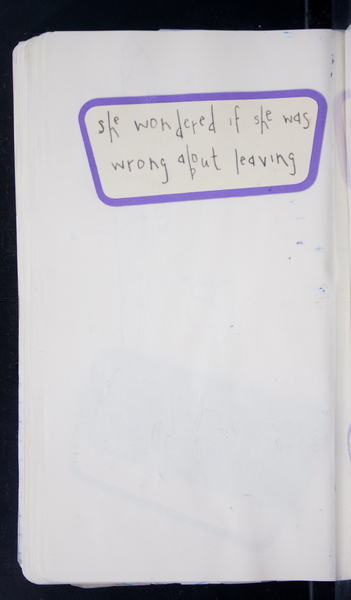 she wondered if she was
wrong about leaving